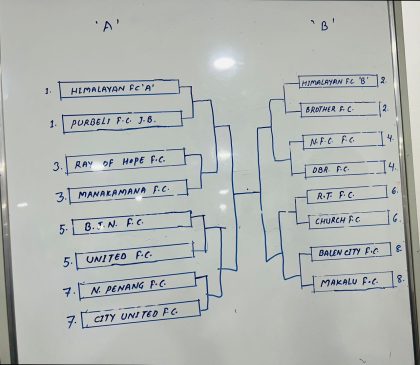 'A'
1. HIMALAYAN FC 'A'
1. PURBELI F.C. J.B.
3. RAY OF HOPE F.C.
3. MANAKAMANA F.C.
5. B.J.N. F.C.
5. UNITED F.C.
7. N. PENANG F.C.
7. CITY UNITED F.C.
'B'
HIMALAYAN FC 'B' 2.
BROTHER F.C. 2.
N.F.C F.C. 4.
DBR F.C. 4.
R.T. F.C. 6.
CHURCH F.C 6.
BALEN CITY F.C. 8.
MAKALU F.C. 8.